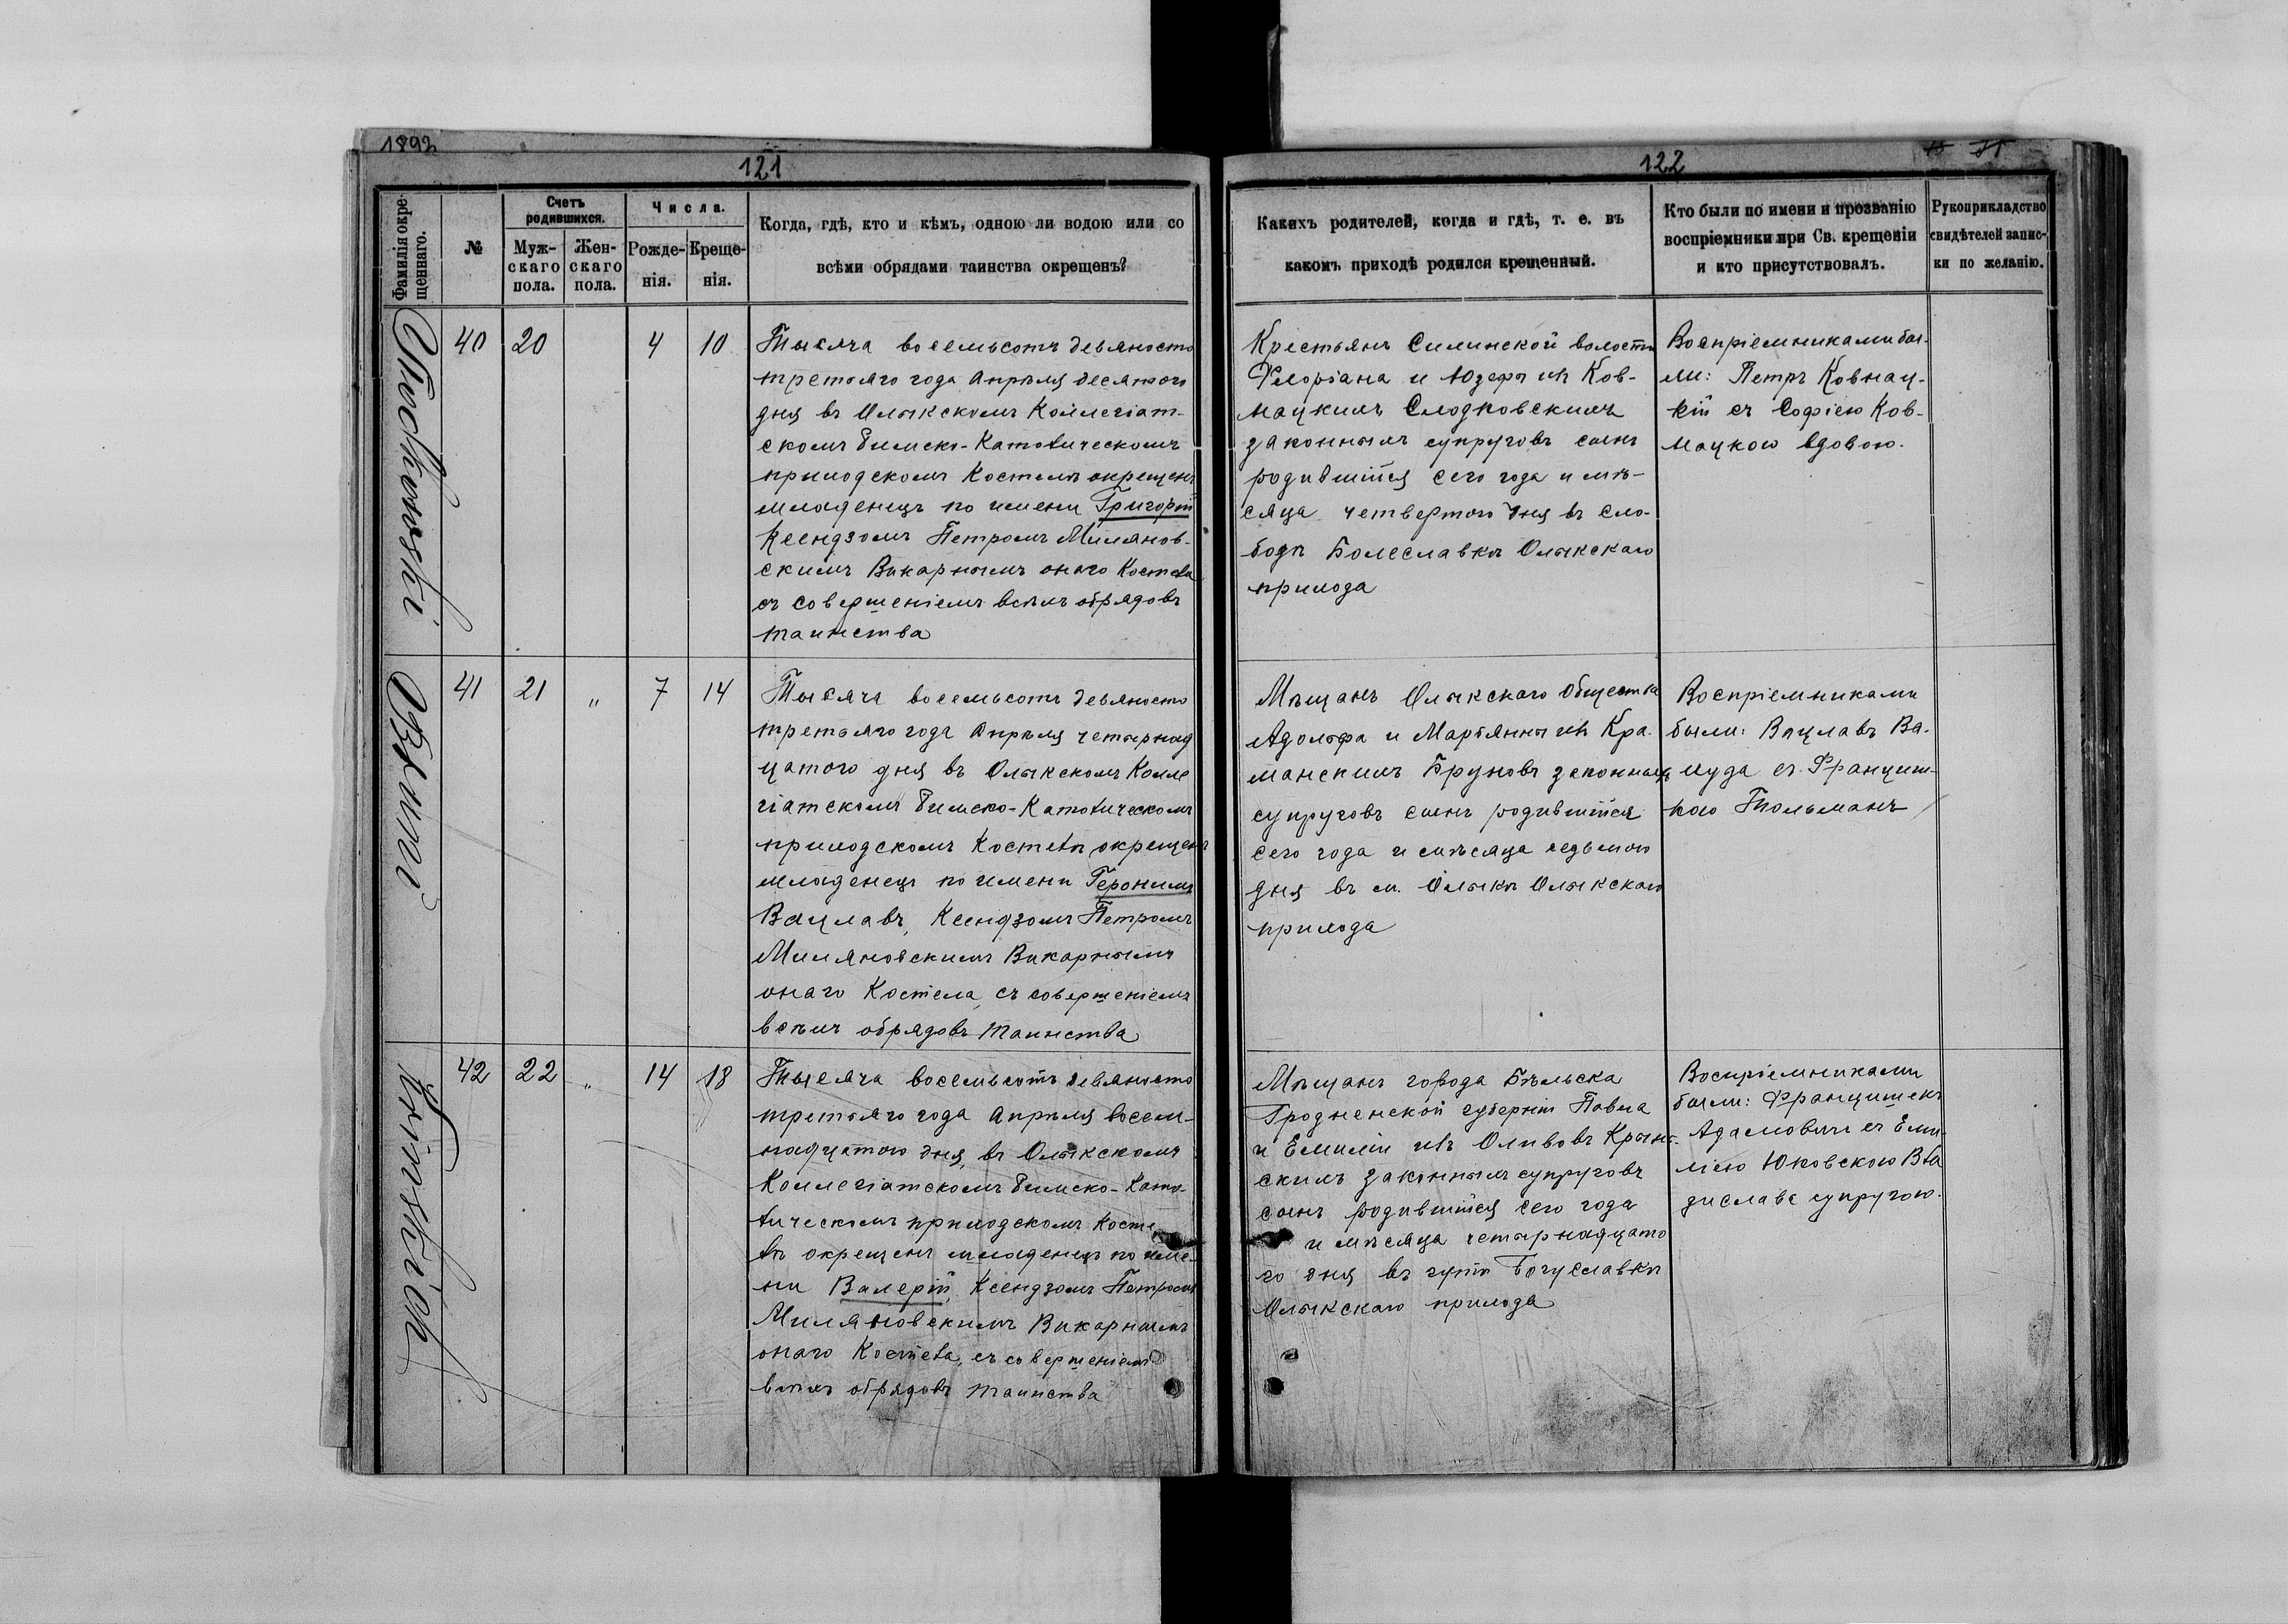 1892
121
Фамилія окре-
щеннаго.
№
Счетъ
родившихся.
Муж-
скаго
пола.
Жен-
скаго
пола.
Числа.
Рожде-
нія.
Креще-
нія.
Когда, гдѣ, кто и кѣмъ, одною ли водою или со
всѣми обрядами таинства окрещенъ?
40
20
4
10
Тысяча восемьсотъ девяносто
третьяго года Апрѣля десятого
дня въ Олыкскомъ Коллегіат-
скомъ Римско-Католическомъ
приходскомъ Костелѣ окрещенъ
младенецъ по имени Григорій
Ксендзомъ Петромъ Милянов-
скимъ Викарнымъ онаго Костела
съ совершеніемъ всѣхъ обрядовъ
таинства
41
21
"
7
14
Тысяча восемьсотъ девяносто
третьяго года Апрѣля четырнад
цатого дня въ Олыкскомъ Колле
гіатскомъ Римско-Католическомъ
приходскомъ Костелѣ окрещенъ
младенецъ по имени Геронимъ
Вацлавъ, Ксендзомъ Петромъ
Миляновскимъ Викарнымъ
онаго Костела, съ совершеніемъ
всѣхъ обрядовъ таинства
Krinskich
42
22
"
14
18
Тысяча восемьсотъ девяносто
третьяго года Апрѣля восем-
надцатого дня, въ Олыкскомъ
Коллегіатскомъ Римско-Като-
лическомъ приходскомъ Косте
лѣ окрещенъ младенецъ по име-
ни Валерій, Ксендзомъ Петромъ
Миляновскимъ Викарнымъ
онаго Костела, съ совершеніемъ
всѣхъ обрядовъ таинства
122
Какихъ родителей, когда и гдѣ, т. е. въ
какомъ приходѣ родился крещенный.
Кто были по имени и прозванію
воспріемники при Св. крещеніи
и кто присутствовалъ.
Рукоприкладство
свидѣтелей запис-
ки по желанію.
Крестьянъ Силинской волости
Флоріана и Юзефы изъ Ков-
нацкихъ Слодковскихъ
законныхъ супруговъ сынъ
родившійся сего года и мѣ-
сяца четвертого дня въ сло-
бодѣ Болеславкѣ Олыкскаго
прихода
Воспріемниками бы-
ли: Петръ Ковнац-
кій съ Софіею Ков-
нацкою вдовою.
Мѣщанъ Олыкского Общества
Адольфа и Маріянны изъ Кра-
манскихъ Бруновъ законныхъ
супруговъ сынъ родившійся
сего года и мѣсяца седьмого
дня въ м. Олыкѣ Олыкскаго
прихода
Воспріемниками
были: Вацлавъ Ва-
луда съ Францишкою
Тольманъ
Мѣщанъ города Бѣльска
Гродненской губерніи Павла
и Емиліи изъ Оливовъ Крын-
скихъ законныхъ супруговъ
сынъ родившійся сего года
и мѣсяца четырнадцато
го дня въ гутѣ Богуславкѣ
Олыкскаго прихода
Воспріемниками
были: Францишекъ
Адамовичъ съ Еми-
ліею Юковскою Вла
дислава супругою.